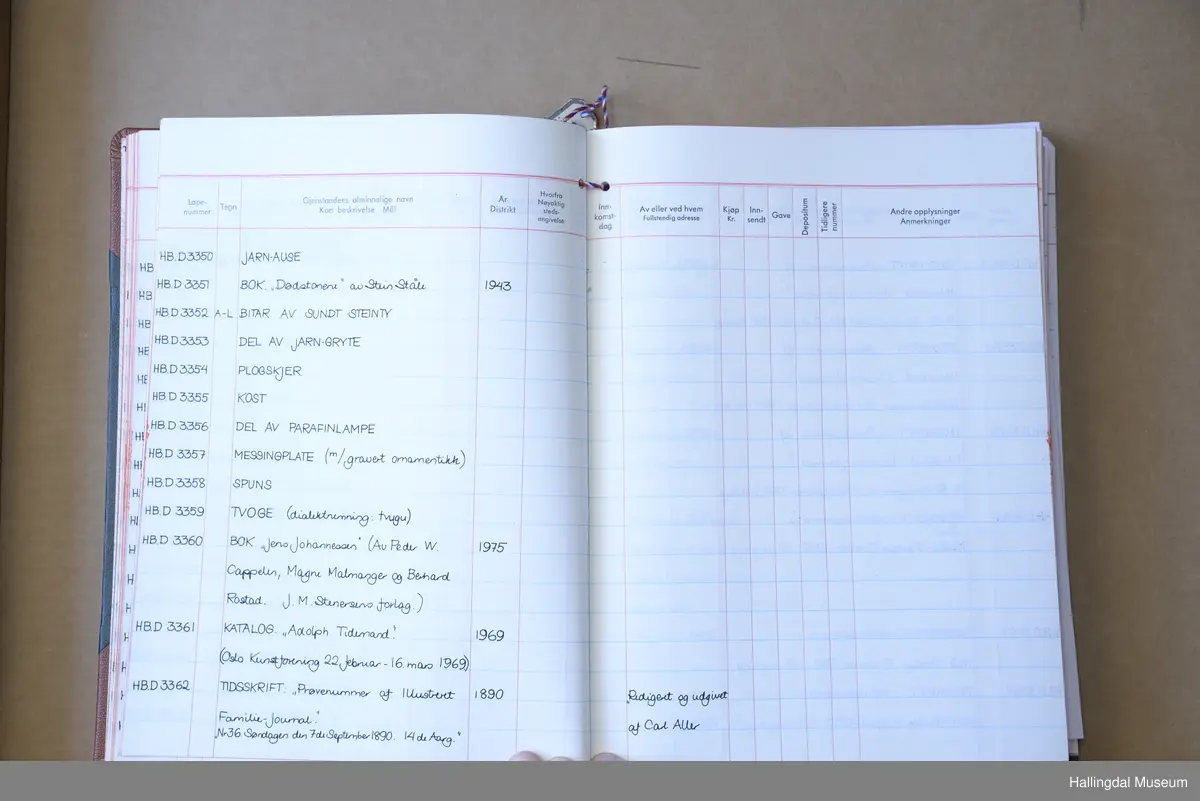 Løpe-
nummer
Tegn
Gjenstandens alminnelige navn
Kort beskrivelse Mål
År
Distrikt
Hvorfra
Nøyaktig
steds-
angivelse
Inn-
komst-
dag
Av eller ved hvem
Fullstendig adresse
Kjøp
Kr.
Inn-
sendt
Gave
Depositum
Tidligere
nummer
Andre opplysninger
Anmerkninger
HB.D 3350 JARN-AUSE
HB.D 3351 BOK. „Dødstonene" av Stein Ståle 1943
HB.D 3352 A-L BITAR AV SUNDT STEINTY
HB.D 3353 DEL AV JARN-GRYTE
HB.D 3354 PLOGSKJER
HB.D 3355 KOST
HB.D 3356 DEL AV PARAFINLAMPE
HB.D 3357 MESSINGPLATE (m/gravert ornamentikk)
HB.D 3358 SPUNS
HB.D 3359 TVOGE (dialektnemning: tvugu)
HB.D 3360 BOK „Jens Johannessen" (Av Peder W. 1975
Cappelen, Magne Malmanger og Berhard
Rostad. J.M. Stenersens forlag.)
HB.D 3361 KATALOG. „Adolph Tidemand". 1969
(Oslo Kunstforening 22. februar - 16. mars 1969)
HB.D 3362 TIDSSKRIFT: „Prøvenummer af Illustreret 1890 „Redigert og udgivet
Familie-Journal". af Carl Aller
„Nr 36 Søndagen den 7de September 1890. 14de Aarg."
Hallingdal Museum